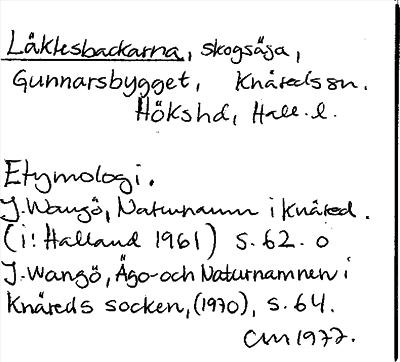 Låktesbackarna, skogsäga,
Gunnarsbygget, Knäreds sn.
Hökshd, Hall. l.
Etymologi.
J. Wangö, Naturnamn i Knäred.
(i: Halland 1961) s. 62. o
J. Wangö, Ägo- och Naturnamnen i
Knäreds socken, (1970), s. 64.
CM 1977.